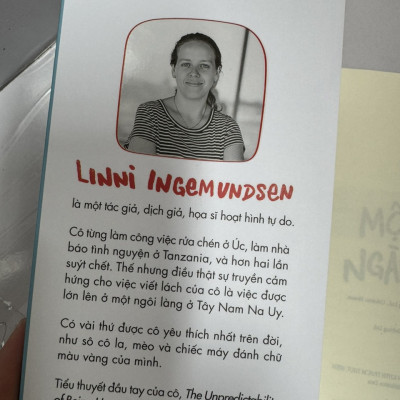 LINNI INGEMUNDSEN
là một tác giả, dịch giả, họa sĩ hoạt hình tự do.
Cô từng làm công việc rửa chén ở Úc, làm nhà
báo tình nguyện ở Tanzania, và hơn hai lần
suýt chết. Thế nhưng điều thật sự truyền cảm
hứng cho việc viết lách của cô là việc được
lớn lên ở một ngôi làng ở Tây Nam Na Uy.
Có vài thứ được cô yêu thích nhất trên đời,
như sô cô la, mèo và chiếc máy đánh chữ
màu vàng của mình.
Tiểu thuyết đầu tay của cô, The Unpredictability
of Being
MỘ
NGÀ